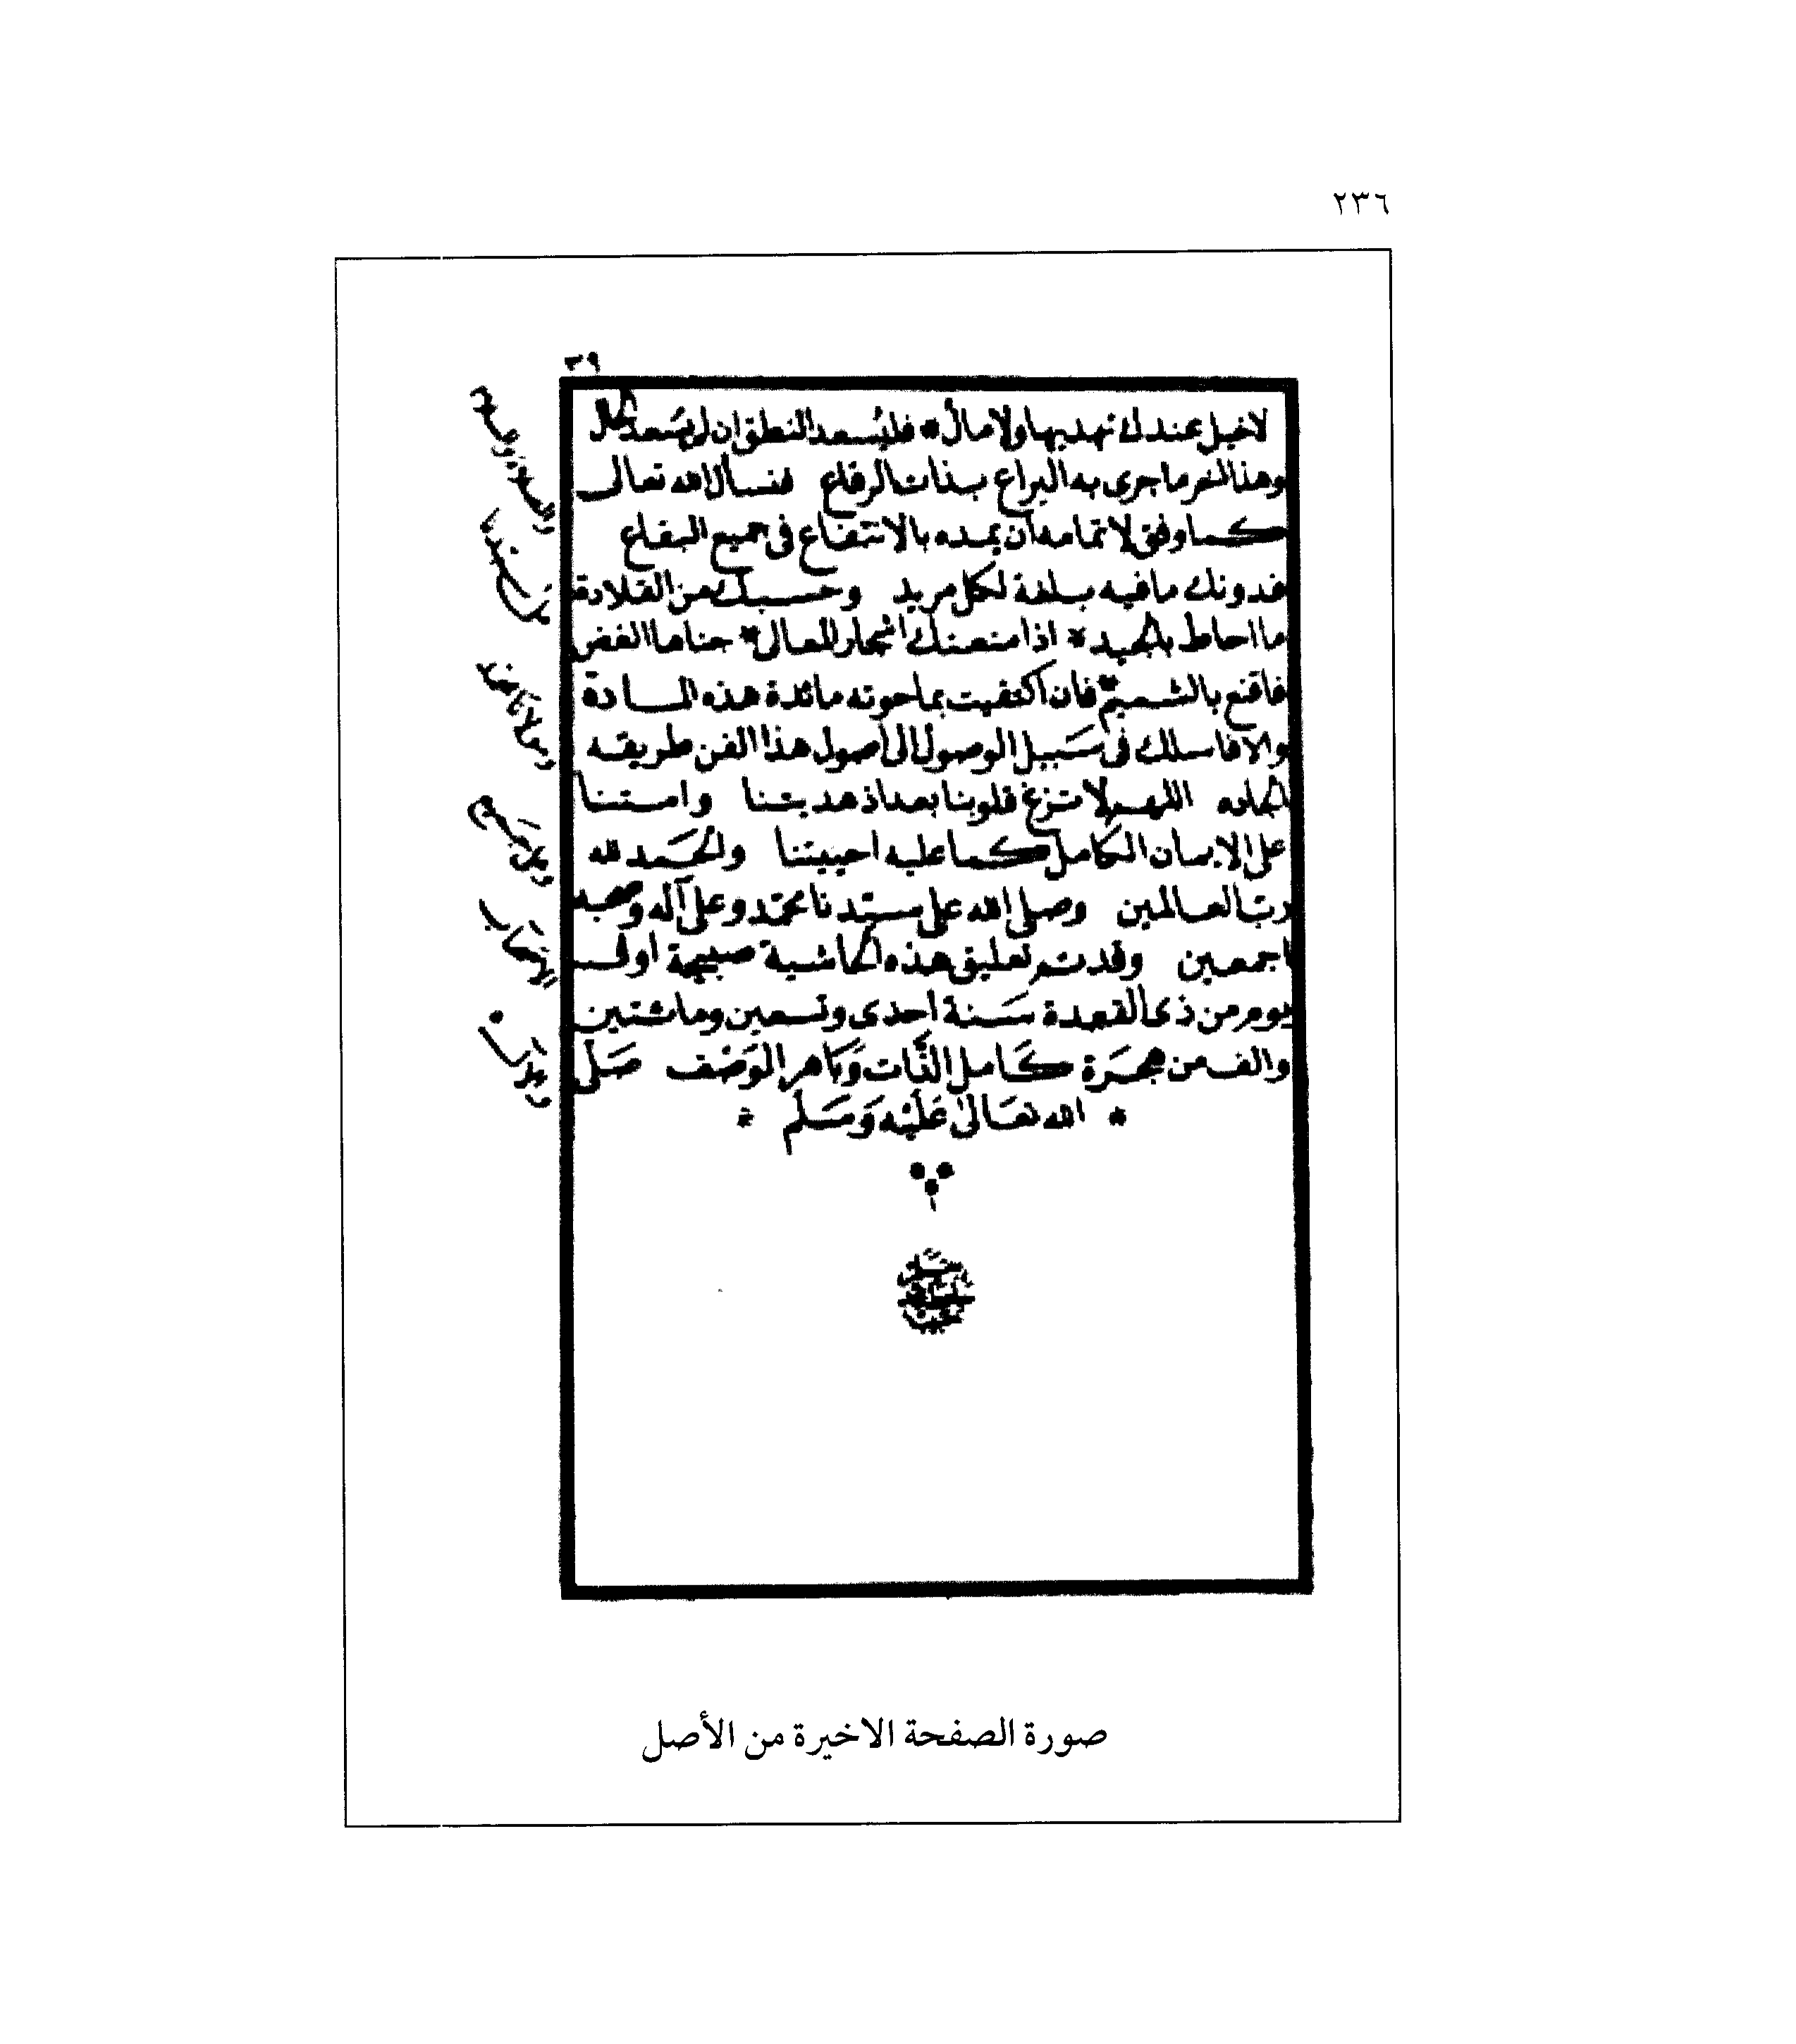 ٢٣٦
٣٩
لا خيل عندك تهديها ولا مال * فليسعد النطق ان لم يسعد الحال
وهذا آخر ما جرى به اليراع بذات الرقاع فنسأل الله تعالى
كما وفق لاتمامه ان يمده بالانتفاع في جميع البقاع
فدونك ما فيه بلغة لكل مريد وحسبك من القلادة
ما احاط بالجيد * اذا منعتك اشجار المعالي * جناها الغض
فاقنع بالشميم * فان اكتفيت بما حوته مائدة هذه المادة
والا فاسلك في سَبيل الوصول الى اصول هذا الفن طريقه
الجاده اللهم لا تزغ قلوبنا بعد اذ هديتنا وامتنا
على الايمان الكامل كما عليه احييتنا والحَمد لله
ربّ العالمين وصلى الله على سيّدنا محمّد وعلى آله وصحبه
اجمعين وقد تم تعليق هذه الحاشية صبيحة اول
يوم من ذي القعدة سَنة احدى وتسعين ومائتين
والف من هجرَة كَامل الذَّات وَبَاهر الوَصْف صَلّى
* الله تعَالىٰ عَليْه وَسَلم *
الصلاة والسلام
على سيدنا
ومولانا محمد
وعلى جميع
الاصحاب
صورة الصفحة الاخيرة من الأصل